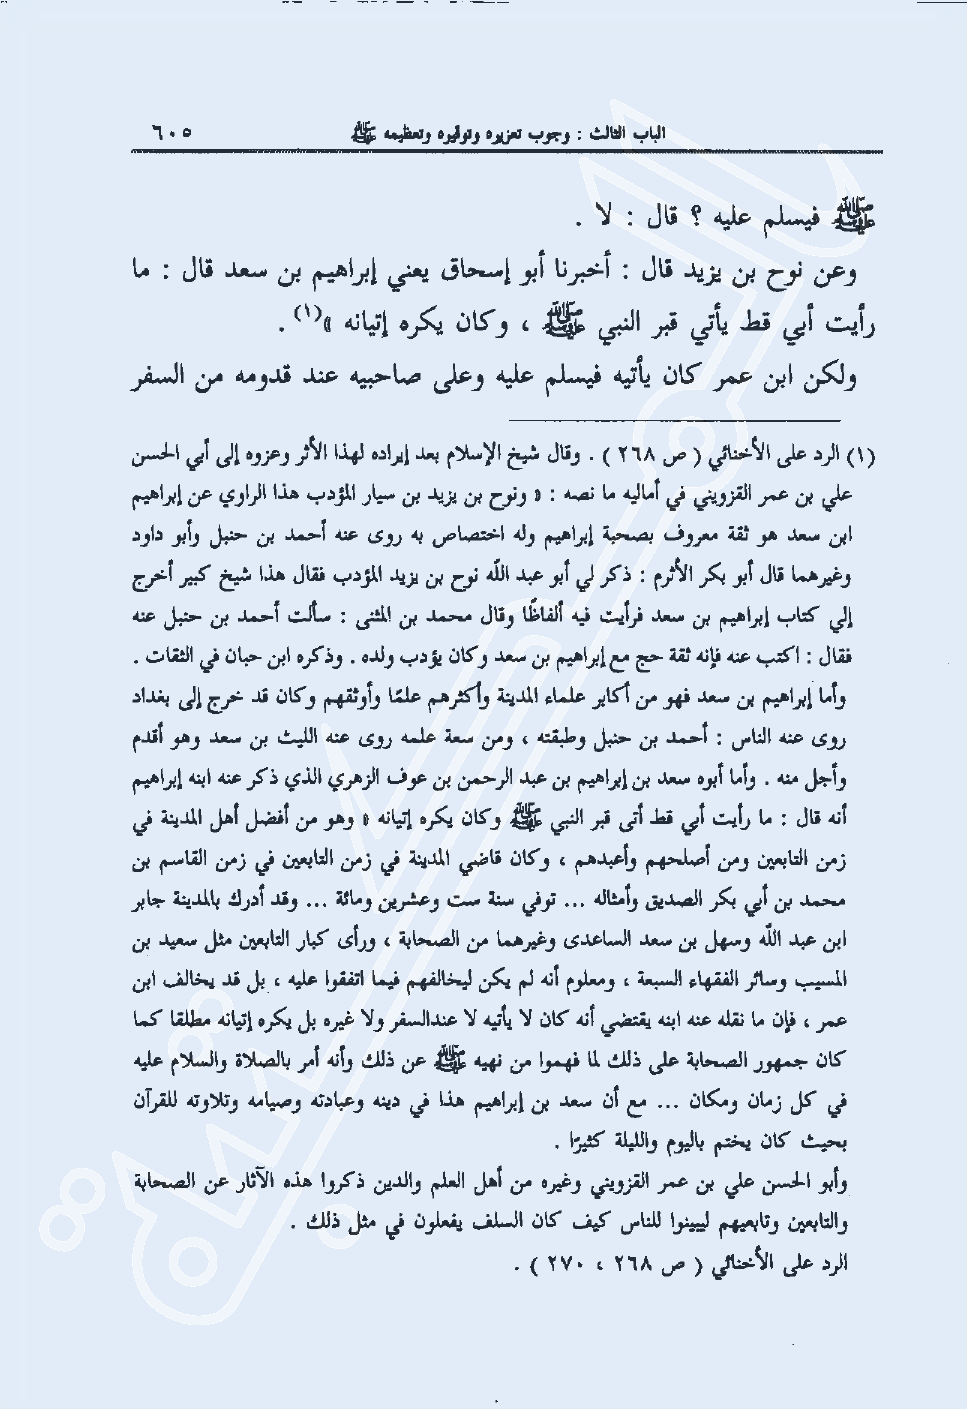 الباب الثالث : وجوب تعزيره وتوقيره وتعظيمه ﷺ ٦٠٥
ﷺ فيسلم عليه ؟ قال : لا .
وعن نوح بن يزيد قال : أخبرنا أبو إسحاق يعني إبراهيم بن سعد قال : ما
رأيت أبي قط يأتي قبر النبي ﷺ ، وكان يكره إتيانه »(١) .
ولكن ابن عمر كان يأتيه فيسلم عليه وعلى صاحبيه عند قدومه من السفر
(١) الرد على الأخنائي ( ص ٢٦٨ ) . وقال شيخ الإسلام بعد إيراده لهذا الأثر وعزوه إلى أبي الحسن
علي بن عمر القزويني في أماليه ما نصه : « ونوح بن يزيد بن سيار المؤدب هذا الراوي عن إبراهيم
ابن سعد هو ثقة معروف بصحبة إبراهيم وله اختصاص به روى عنه أحمد بن حنبل وأبو داود
وغيرهما قال أبو بكر الأثرم : ذكر لي أبو عبد الله نوح بن يزيد المؤدب فقال هذا شيخ كبير أخرج
إلي كتاب إبراهيم بن سعد فرأيت فيه ألفاظًا وقال محمد بن المثنى : سألت أحمد بن حنبل عنه
فقال : اكتب عنه فإنه ثقة حج مع إبراهيم بن سعد وكان يؤدب ولده . وذكره ابن حبان في الثقات .
وأما إبراهيم بن سعد فهو من أكابر علماء المدينة وأكثرهم علمًا وأوثقهم وكان قد خرج إلى بغداد
روى عنه الناس : أحمد بن حنبل وطبقته ، ومن سعة علمه روى عنه الليث بن سعد وهو أقدم
وأجل منه . وأما أبوه سعد بن إبراهيم بن عبد الرحمن بن عوف الزهري الذي ذكر عنه ابنه إبراهيم
أنه قال : ما رأيت أبي قط أتى قبر النبي ﷺ وكان يكره إتيانه » وهو من أفضل أهل المدينة في
زمن التابعين ومن أصلحهم وأعبدهم ، وكان قاضي المدينة في زمن التابعين في زمن القاسم بن
محمد بن أبي بكر الصديق وأمثاله ... توفي سنة ست وعشرين ومائة ... وقد أدرك بالمدينة جابر
ابن عبد الله وسهل بن سعد الساعدى وغيرهما من الصحابة ، ورأى كبار التابعين مثل سعيد بن
المسيب وسائر الفقهاء السبعة ، ومعلوم أنه لم يكن ليخالفهم فيما اتفقوا عليه ، بل قد يخالف ابن
عمر ، فإن ما نقله عنه ابنه يقتضي أنه كان لا يأتيه لا عندالسفر ولا غيره بل يكره إتيانه مطلقا كما
كان جمهور الصحابة على ذلك لما فهموا من نهيه ﷺ عن ذلك وأنه أمر بالصلاة والسلام عليه
في كل زمان ومكان ... مع أن سعد بن إبراهيم هذا في دينه وعبادته وصيامه وتلاوته للقرآن
بحيث كان يختم باليوم والليلة كثيرًا .
وأبو الحسن علي بن عمر القزويني وغيره من أهل العلم والدين ذكروا هذه الآثار عن الصحابة
والتابعين وتابعيهم ليبينوا للناس كيف كان السلف يفعلون في مثل ذلك .
الرد على الأخنائي ( ص ٢٦٨ ، ٢٧٠ ) .